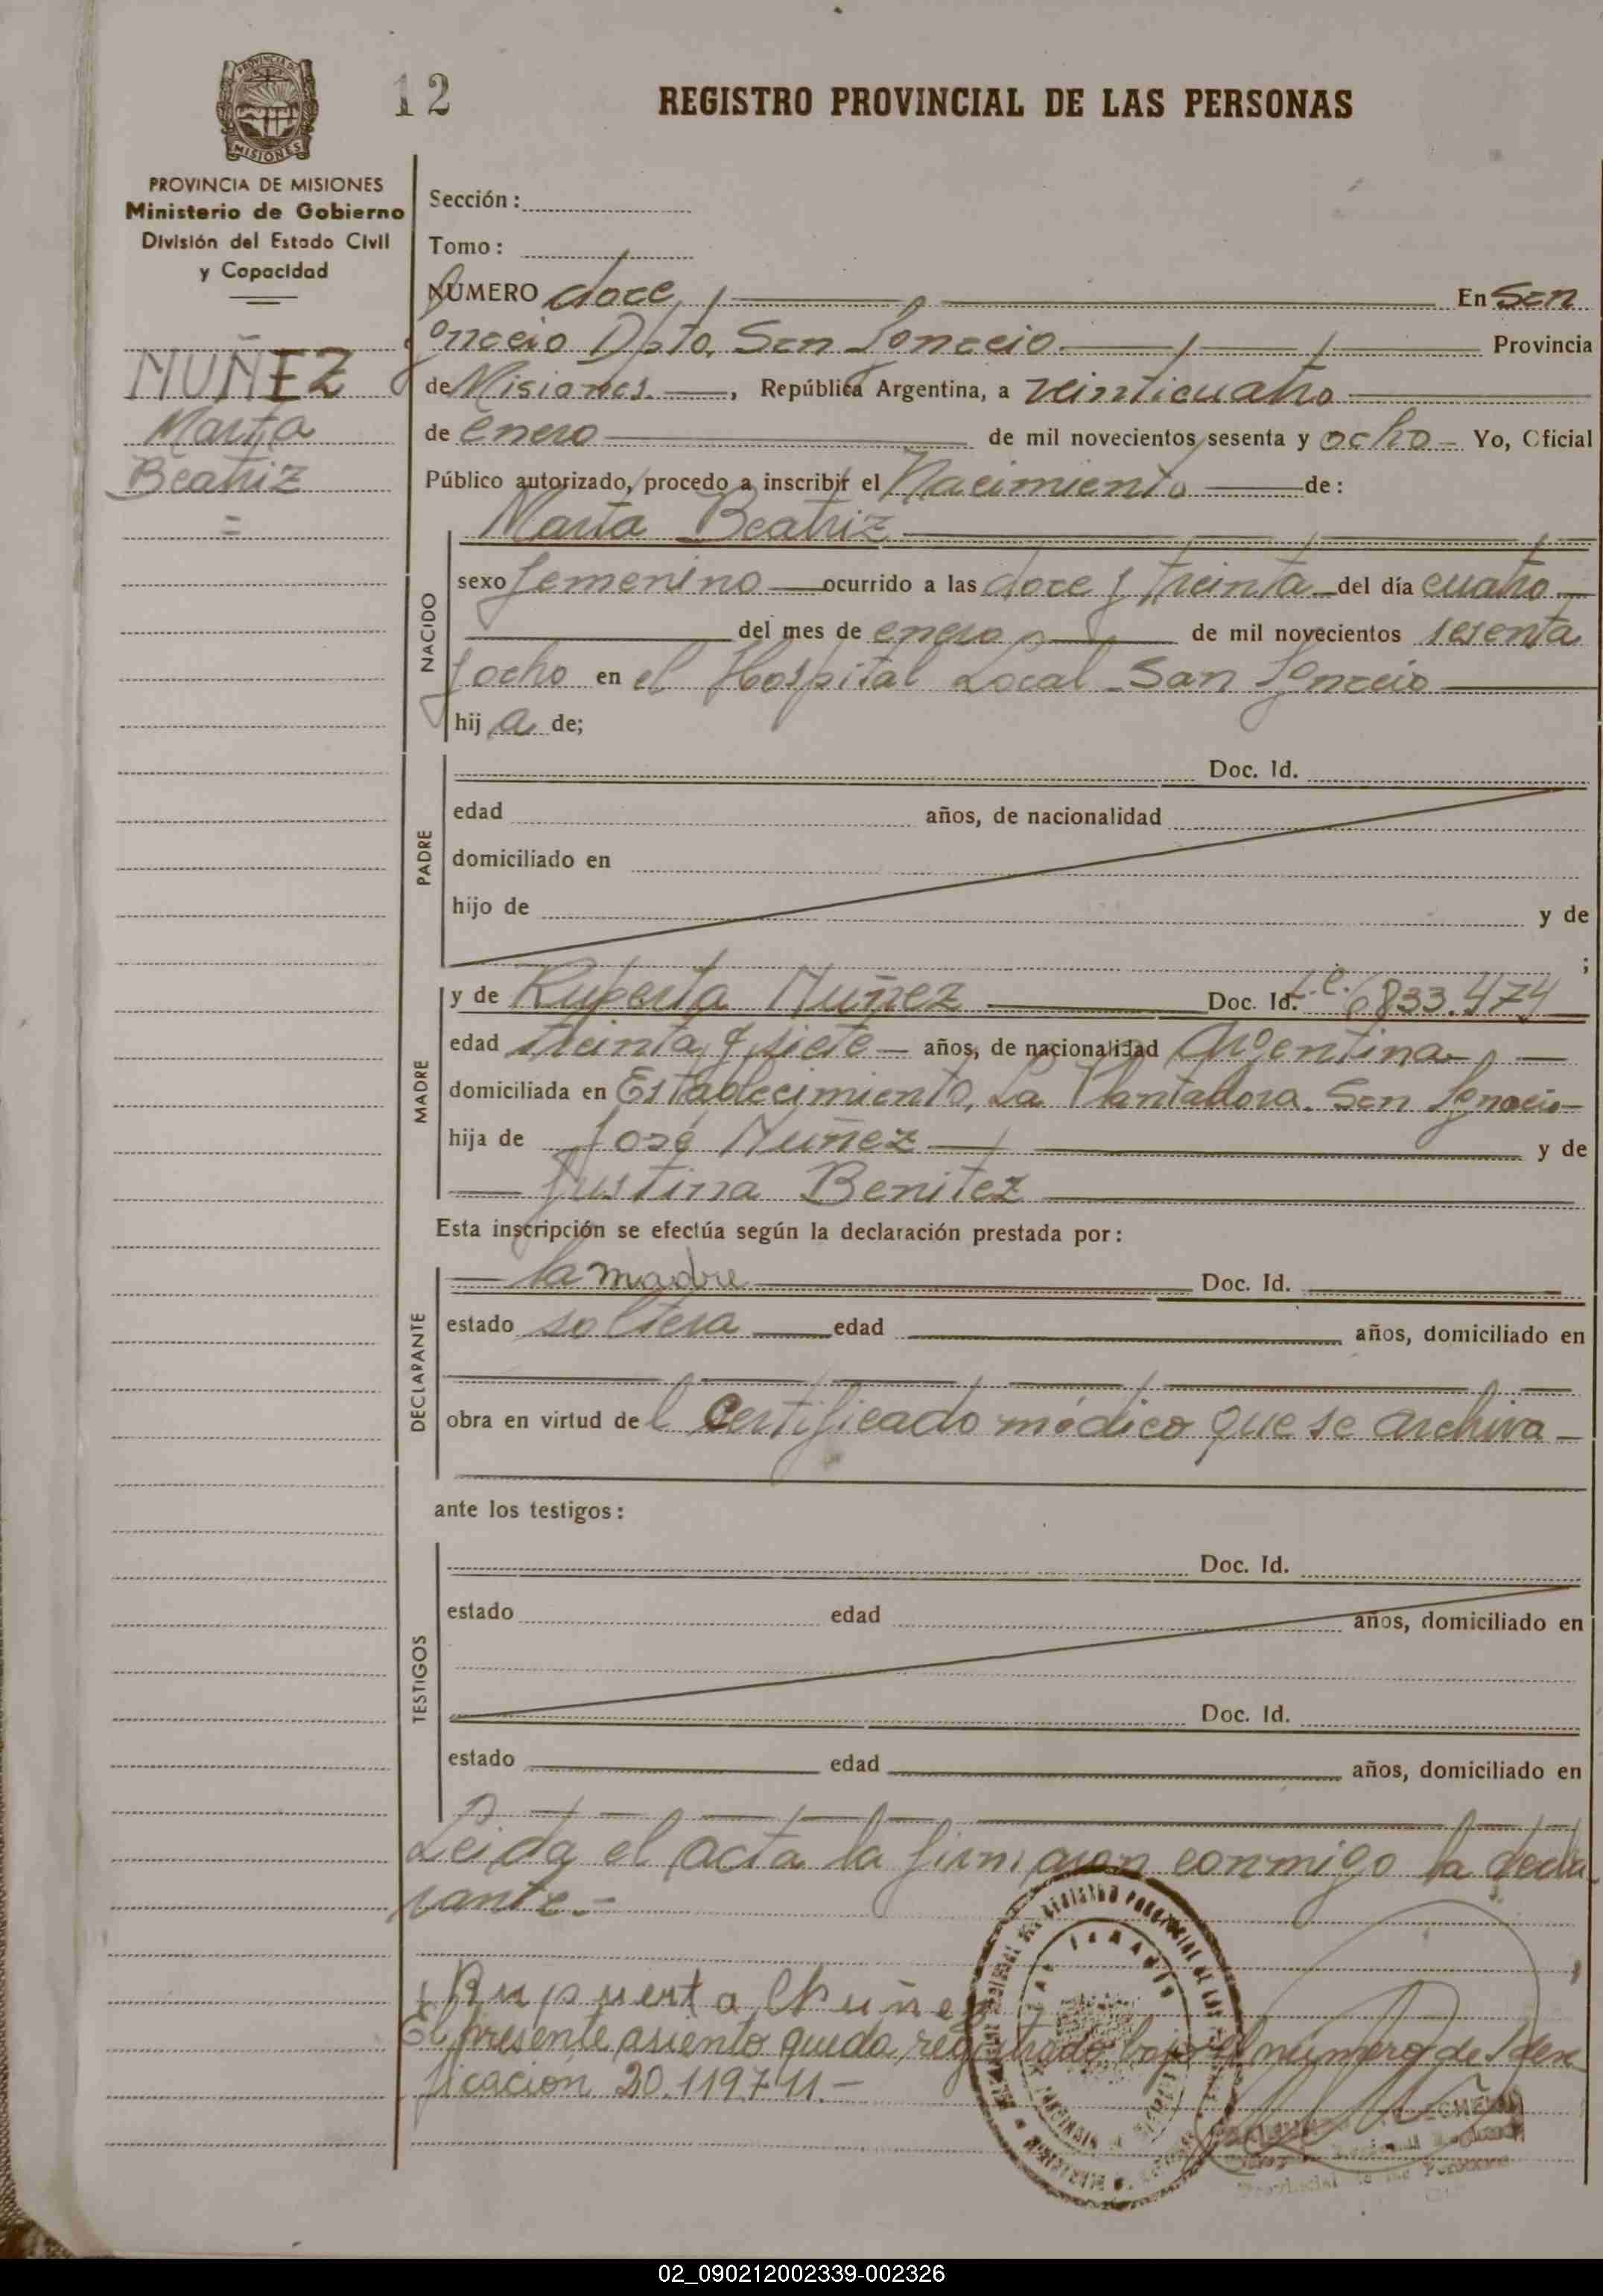 12
REGISTRO PROVINCIAL DE LAS PERSONAS
PROVINCIA DE MISIONES
MISIONES
PROVINCIA DE MISIONES
Ministerio de Gobierno
División del Estado Civil
y Capacidad
NUÑEZ
Marta
Beatriz
=
Sección:
Tomo:
NÚMERO doce, En San
Ignacio Dpto. San Ignacio Provincia
de Misiones. , República Argentina, a veinticuatro
de enero de mil novecientos sesenta y ocho Yo, Oficial
Público autorizado, procedo a inscribir el Nacimiento de:
Marta Beatriz
NACIDO
sexo femenino ocurrido a las doce y treinta del día cuatro
del mes de enero de mil novecientos sesenta
y ocho en el Hospital Local San Ignacio
hij a de;
PADRE
Doc. Id.
edad años, de nacionalidad
domiciliado en
hijo de y de
;
MADRE
y de Ruperta Nuñez Doc. Id. L.C. 6833.474
edad treinta y siete años, de nacionalidad Argentina
domiciliada en Establecimiento, La Plantadora. San Ignacio
hija de José Nuñez y de
Justina Benitez
Esta inscripción se efectúa según la declaración prestada por:
DECLARANTE
la madre Doc. Id.
estado soltera edad años, domiciliado en
obra en virtud de l certificado médico que se archiva
ante los testigos:
TESTIGOS
Doc. Id.
estado edad años, domiciliado en
Doc. Id.
estado edad años, domiciliado en
Leida el acta la firmaron conmigo la decla
rante.-
Rupuerta Nuñez
El presente asiento queda registrado bajo el número de Iden
ficación 20.119.711.-
02_090212002339-002326